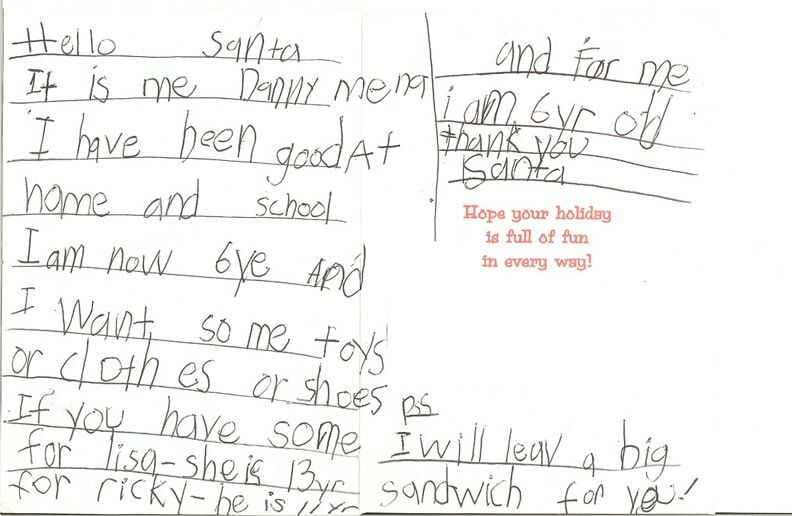 Hello Santa
It is me Danny mena
I have been good At
home and school
I am now 6ye And
I Want some toys
or clothes or shoes
If you have some
for lisa-she is 13yr
for ricky-he is 11yr
and for me
i am 6yr old
thank you
Santa
Hope your holiday
is full of fun
in every way!
pss
I will leav a big
sandwich for you!